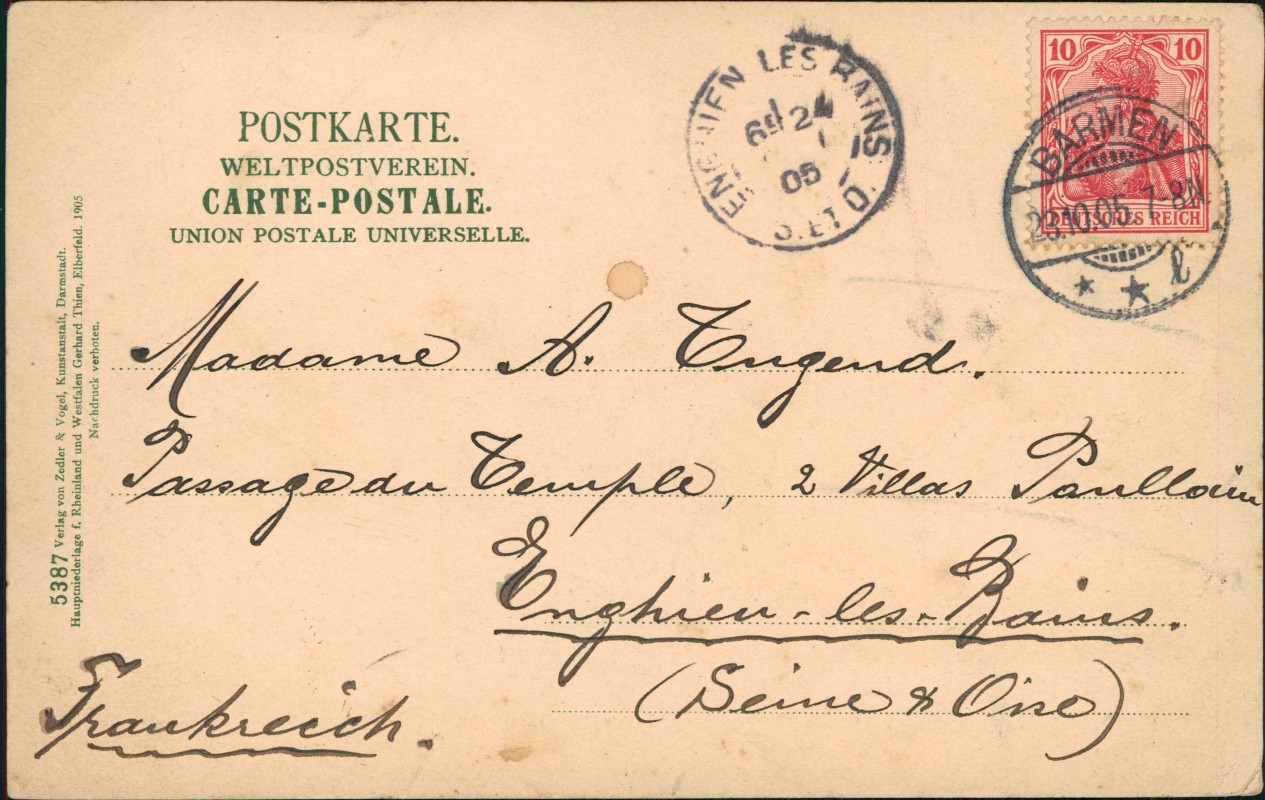 POSTKARTE.
WELTPOSTVEREIN.
CARTE-POSTALE.
UNION POSTALE UNIVERSELLE.
ENGHIEN LES BAINS
24
05
S. ET O.
10 10
DEUTSCHES REICH
BARMEN
23.10.05.7-8N
* * l
Madame A. Tugend.
Passage du Temple, 2 Villas
Enghien-les-Bains.
(Seine & Oise)
Frankreich.
5387 Verlag von Zedler & Vogel, Kunstanstalt, Darmstadt.
Hauptniederlage f. Rheinland und Westfalen Gerhard Thien, Elberfeld. 1905
Nachdruck verboten.